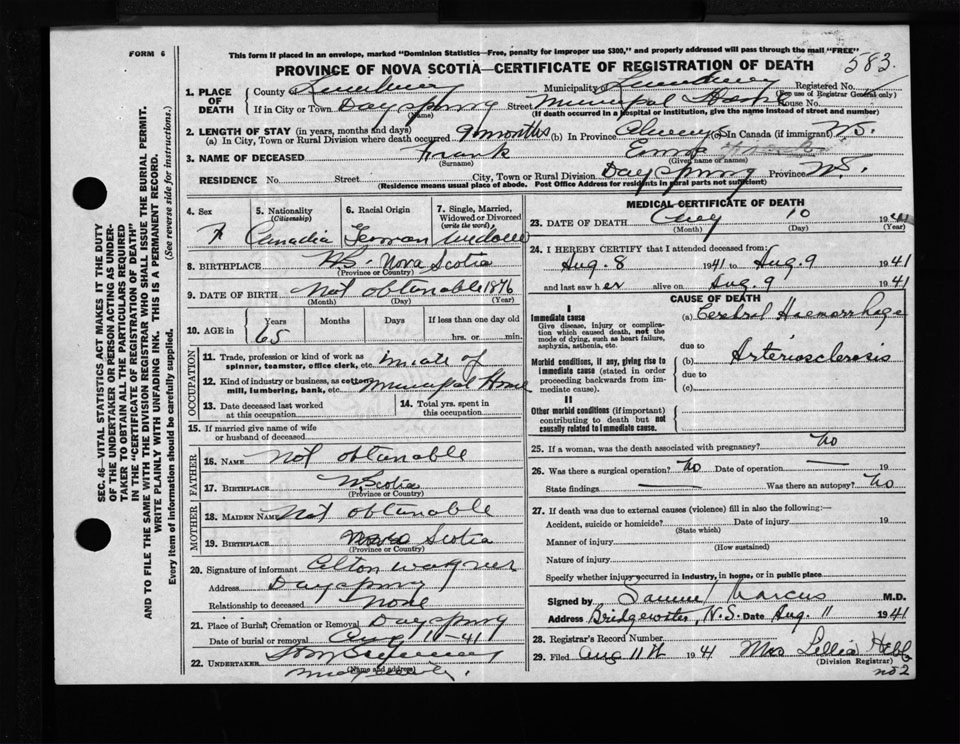 FORM 6
This form if placed in an envelope, marked "Dominion Statistics—Free, penalty for improper use $300," and properly addressed will pass through the mail "FREE"
583.
PROVINCE OF NOVA SCOTIA—CERTIFICATE OF REGISTRATION OF DEATH
1. PLACE OF DEATH
County Lunenburg Municipality Lunenburg Registered No.
(For use of Registrar General only)
If in City or Town Dayspring Street Municipal House No.
(Name) (If death occurred in a hospital or institution, give the name instead of street and number)
2. LENGTH OF STAY (in years, months and days)
(a) In City, Town or Rural Division where death occurred 9 months (b) In Province Always (c) In Canada (if immigrant)
3. NAME OF DECEASED Frank Emma
(Surname) (Given name or names)
RESIDENCE No. Street City, Town or Rural Division Dayspring Province N.S.
(Residence means usual place of abode. Post Office Address for residents in rural parts not sufficient)
4. Sex 5. Nationality (Citizenship) 6. Racial Origin 7. Single, Married, Widowed or Divorced (write the word)
F Canadia German
8. BIRTHPLACE NS. Nova Scotia
(Province or Country)
9. DATE OF BIRTH Not obtainable 1876
(Month) (Day) (Year)
10. AGE in Years Months Days If less than one day old
65 hrs. or min.
OCCUPATION
11. Trade, profession or kind of work as spinner, teamster, office clerk, etc. of
12. Kind of industry or business, as cotton mill, lumbering, bank, etc. Municipal Home
13. Date deceased last worked at this occupation
14. Total yrs. spent in this occupation
15. If married give name of wife or husband of deceased
FATHER
16. NAME Not obtainable
17. BIRTHPLACE N Scotia
(Province or Country)
MOTHER
18. MAIDEN NAME Not obtainable
19. BIRTHPLACE Nova Scotia
(Province or Country)
20. Signature of informant Alton Wagner
Address Dayspring
Relationship to deceased None
21. Place of Burial, Cremation or Removal Dayspring
Date of burial or removal Aug 11-41
22. UNDERTAKER
(Name and address)
MEDICAL CERTIFICATE OF DEATH
23. DATE OF DEATH Aug 10 1941
(Month) (Day) (Year)
24. I HEREBY CERTIFY that I attended deceased from:
Aug. 8 1941 to Aug. 9 1941
and last saw her alive on Aug. 9 1941
CAUSE OF DEATH
I
Immediate cause
Give disease, injury or complication which caused death, not the mode of dying, such as heart failure, asphyxia, asthenia, etc.
(a) Cerebral Haemorrhage
due to
Morbid conditions, if any, giving rise to immediate cause (stated in order proceeding backwards from immediate cause).
(b) Arteriosclerosis
due to
(c)
II
Other morbid conditions (if important) contributing to death but not causally related to immediate cause.
25. If a woman, was the death associated with pregnancy? No
26. Was there a surgical operation? No Date of operation — 19
State findings — Was there an autopsy? No
27. If death was due to external causes (violence) fill in also the following:—
Accident, suicide or homicide? Date of injury 19
(State which)
Manner of injury
(How sustained)
Nature of injury
Specify whether injury occurred in industry, in home, or in public place
Signed by Samuel Marcus M.D.
Address Bridgewater, N.S. Date Aug. 11 1941
28. Registrar's Record Number
29. Filed Aug 11th 1941 Mrs Lillia Hebb
(Division Registrar)
no 2
SEC. 46—VITAL STATISTICS ACT MAKES IT THE DUTY
OF THE UNDERTAKER OR PERSON ACTING AS UNDERTAKER TO OBTAIN ALL THE PARTICULARS REQUIRED
IN THE "CERTIFICATE OF REGISTRATION OF DEATH" AND TO FILE THE SAME WITH THE DIVISION REGISTRAR WHO SHALL ISSUE THE BURIAL PERMIT.
WRITE PLAINLY WITH UNFADING INK. THIS IS A PERMANENT RECORD.
Every item of information should be carefully supplied. (See reverse side for instructions.)